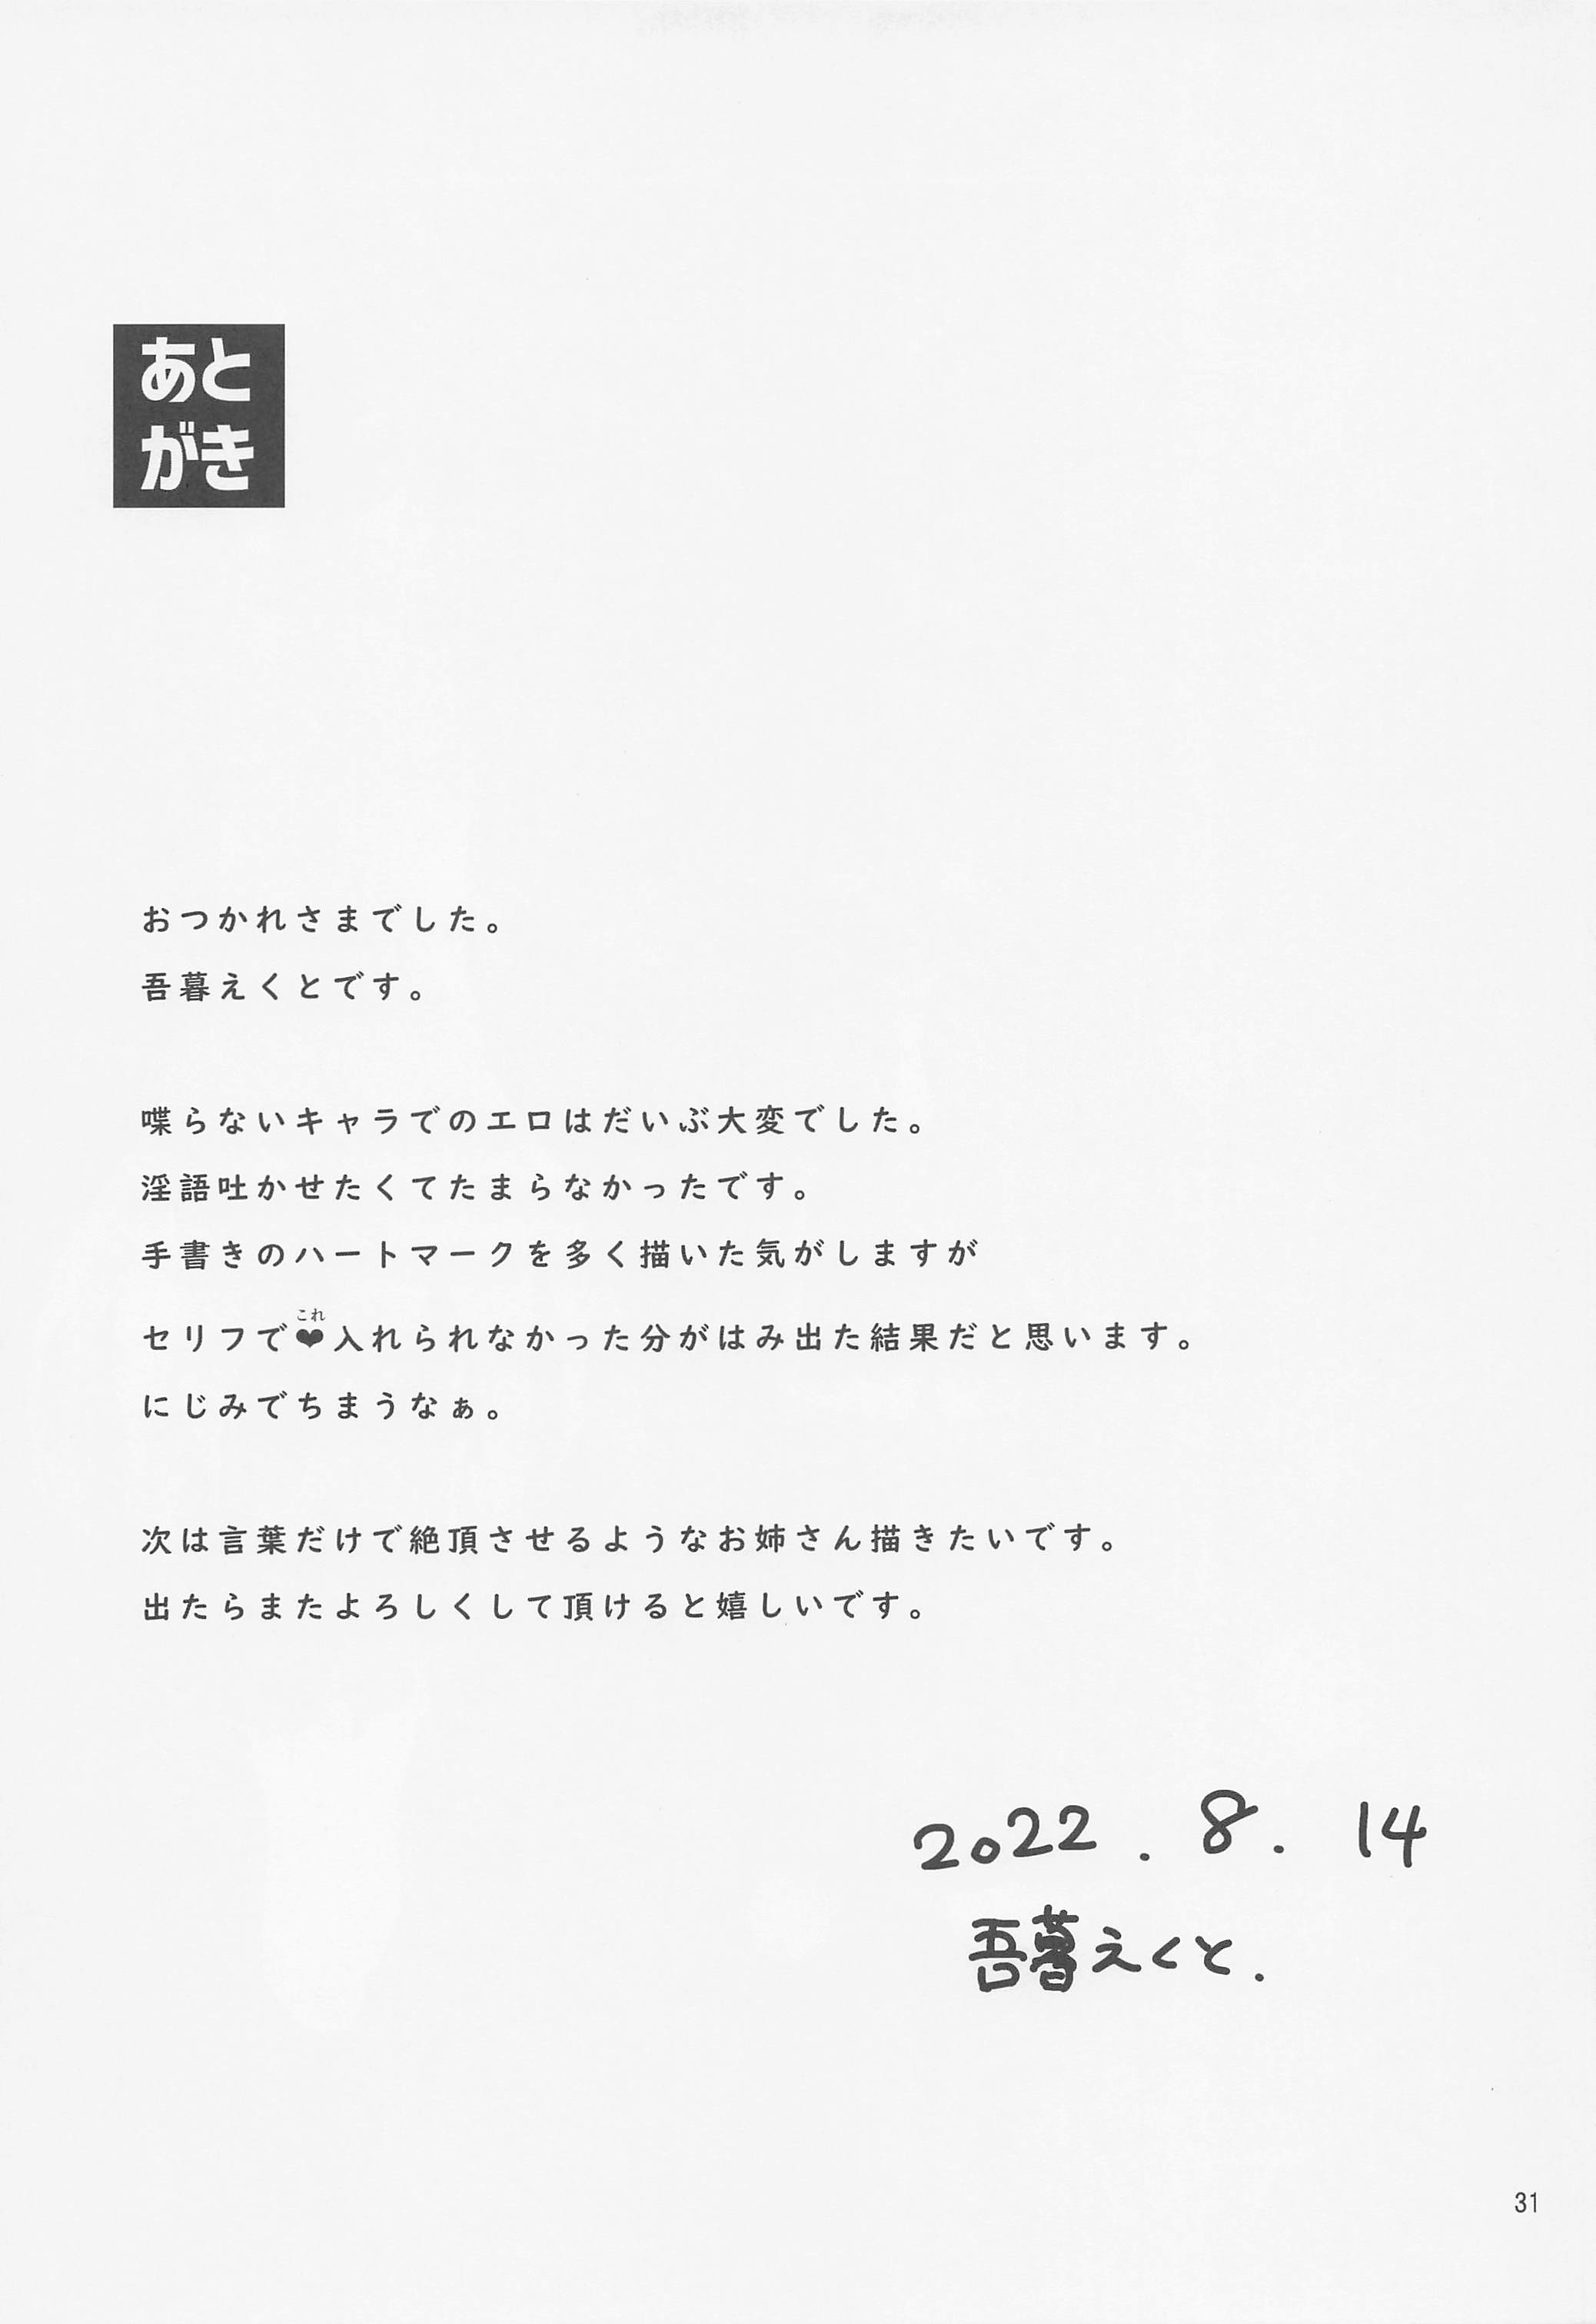 あと
がき
おつかれさまでした。
吾暮えくとです。
喋らないキャラでのエロはだいぶ大変でした。
淫語吐かせたくてたまらなかったです。
手書きのハートマークを多く描いた気がしますが
これ
セリフで❤入れられなかった分がはみ出た結果だと思います。
にじみでちまうなぁ。
次は言葉だけで絶頂させるようなお姉さん描きたいです。
出たらまたよろしくして頂けると嬉しいです。
2022.8.14
吾暮えくと.
31